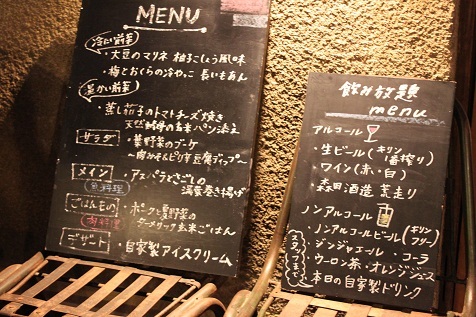 MENU
冷たい前菜
・大豆のマリネ 柚子こしょう風味
・梅とおくらの冷やっこ 長いもあん
温かい前菜
・蒸し茄子のトマトチーズ焼き
天然酵母の玄米パン添え
サラダ
・葉野菜のブーケ
〜肉みそピリ辛豆腐ディップ〜
メイン
魚料理
・アスパラとさごしの
湯葉巻き揚げ
ごはんもの
肉料理
・ポークと夏野菜の
ターメリック玄米ごはん
デザート
・自家製アイスクリーム
飲み放題
menu
アルコール
・生ビール(キリン一番搾り)
・ワイン(赤・白)
・森田酒造 荒走り
ノンアルコール
・ノンアルコールビール(キリンフリー)
・ジンジャエール ・コーラ
・ウーロン茶・オレンジジュース
・本日の自家製ドリンク